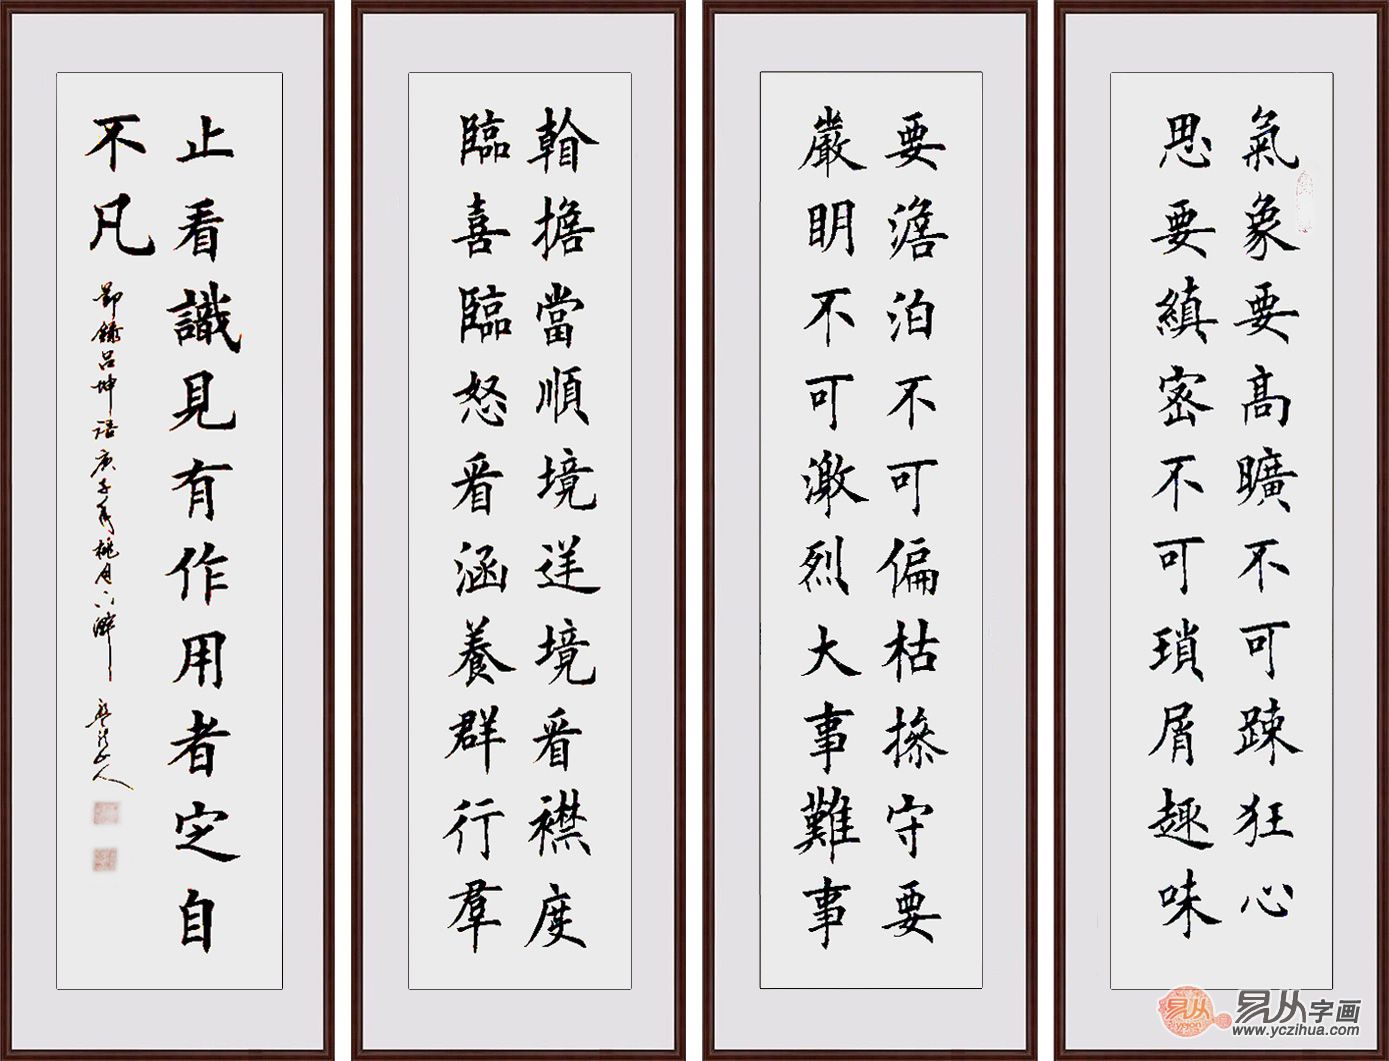 氣象要髙曠不可踈狂心
思要縝密不可瑣屑趣味
要澹泊不可偏枯操守要
嚴眀不可激烈大事難事
看擔當順境逆境看襟度
臨喜臨怒看涵養群行羣
止看識見有作用者定自
不凡
節錄呂坤語庚子年桃月
山人
易从
yicjon
易从字画
www.yczihua.com